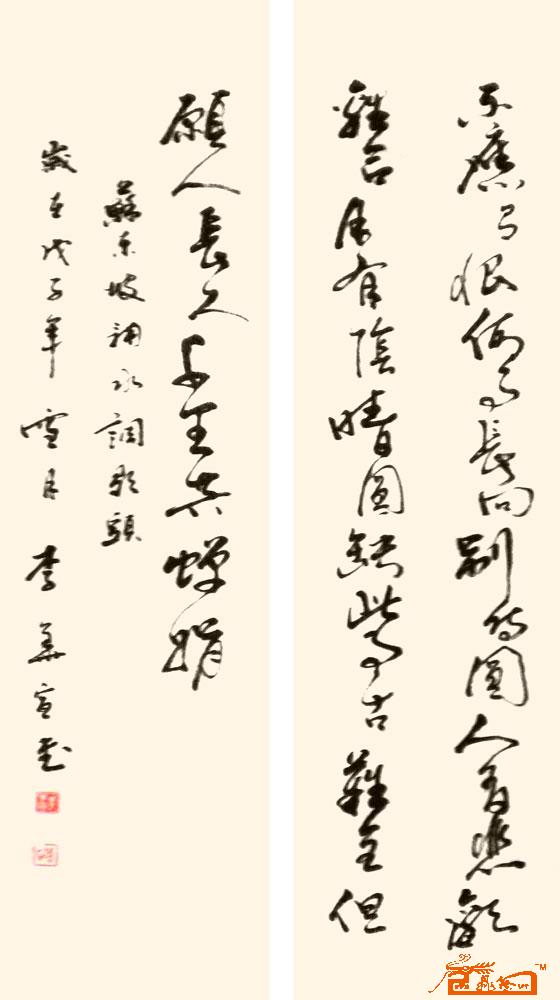 不應有恨何事長向別時圓人有悲歡
離合月有陰晴圓缺此事古難全但
願人長久千里共蟬娟
蘇東坡詞水調歌頭
歲在戊子年雪月李宣書